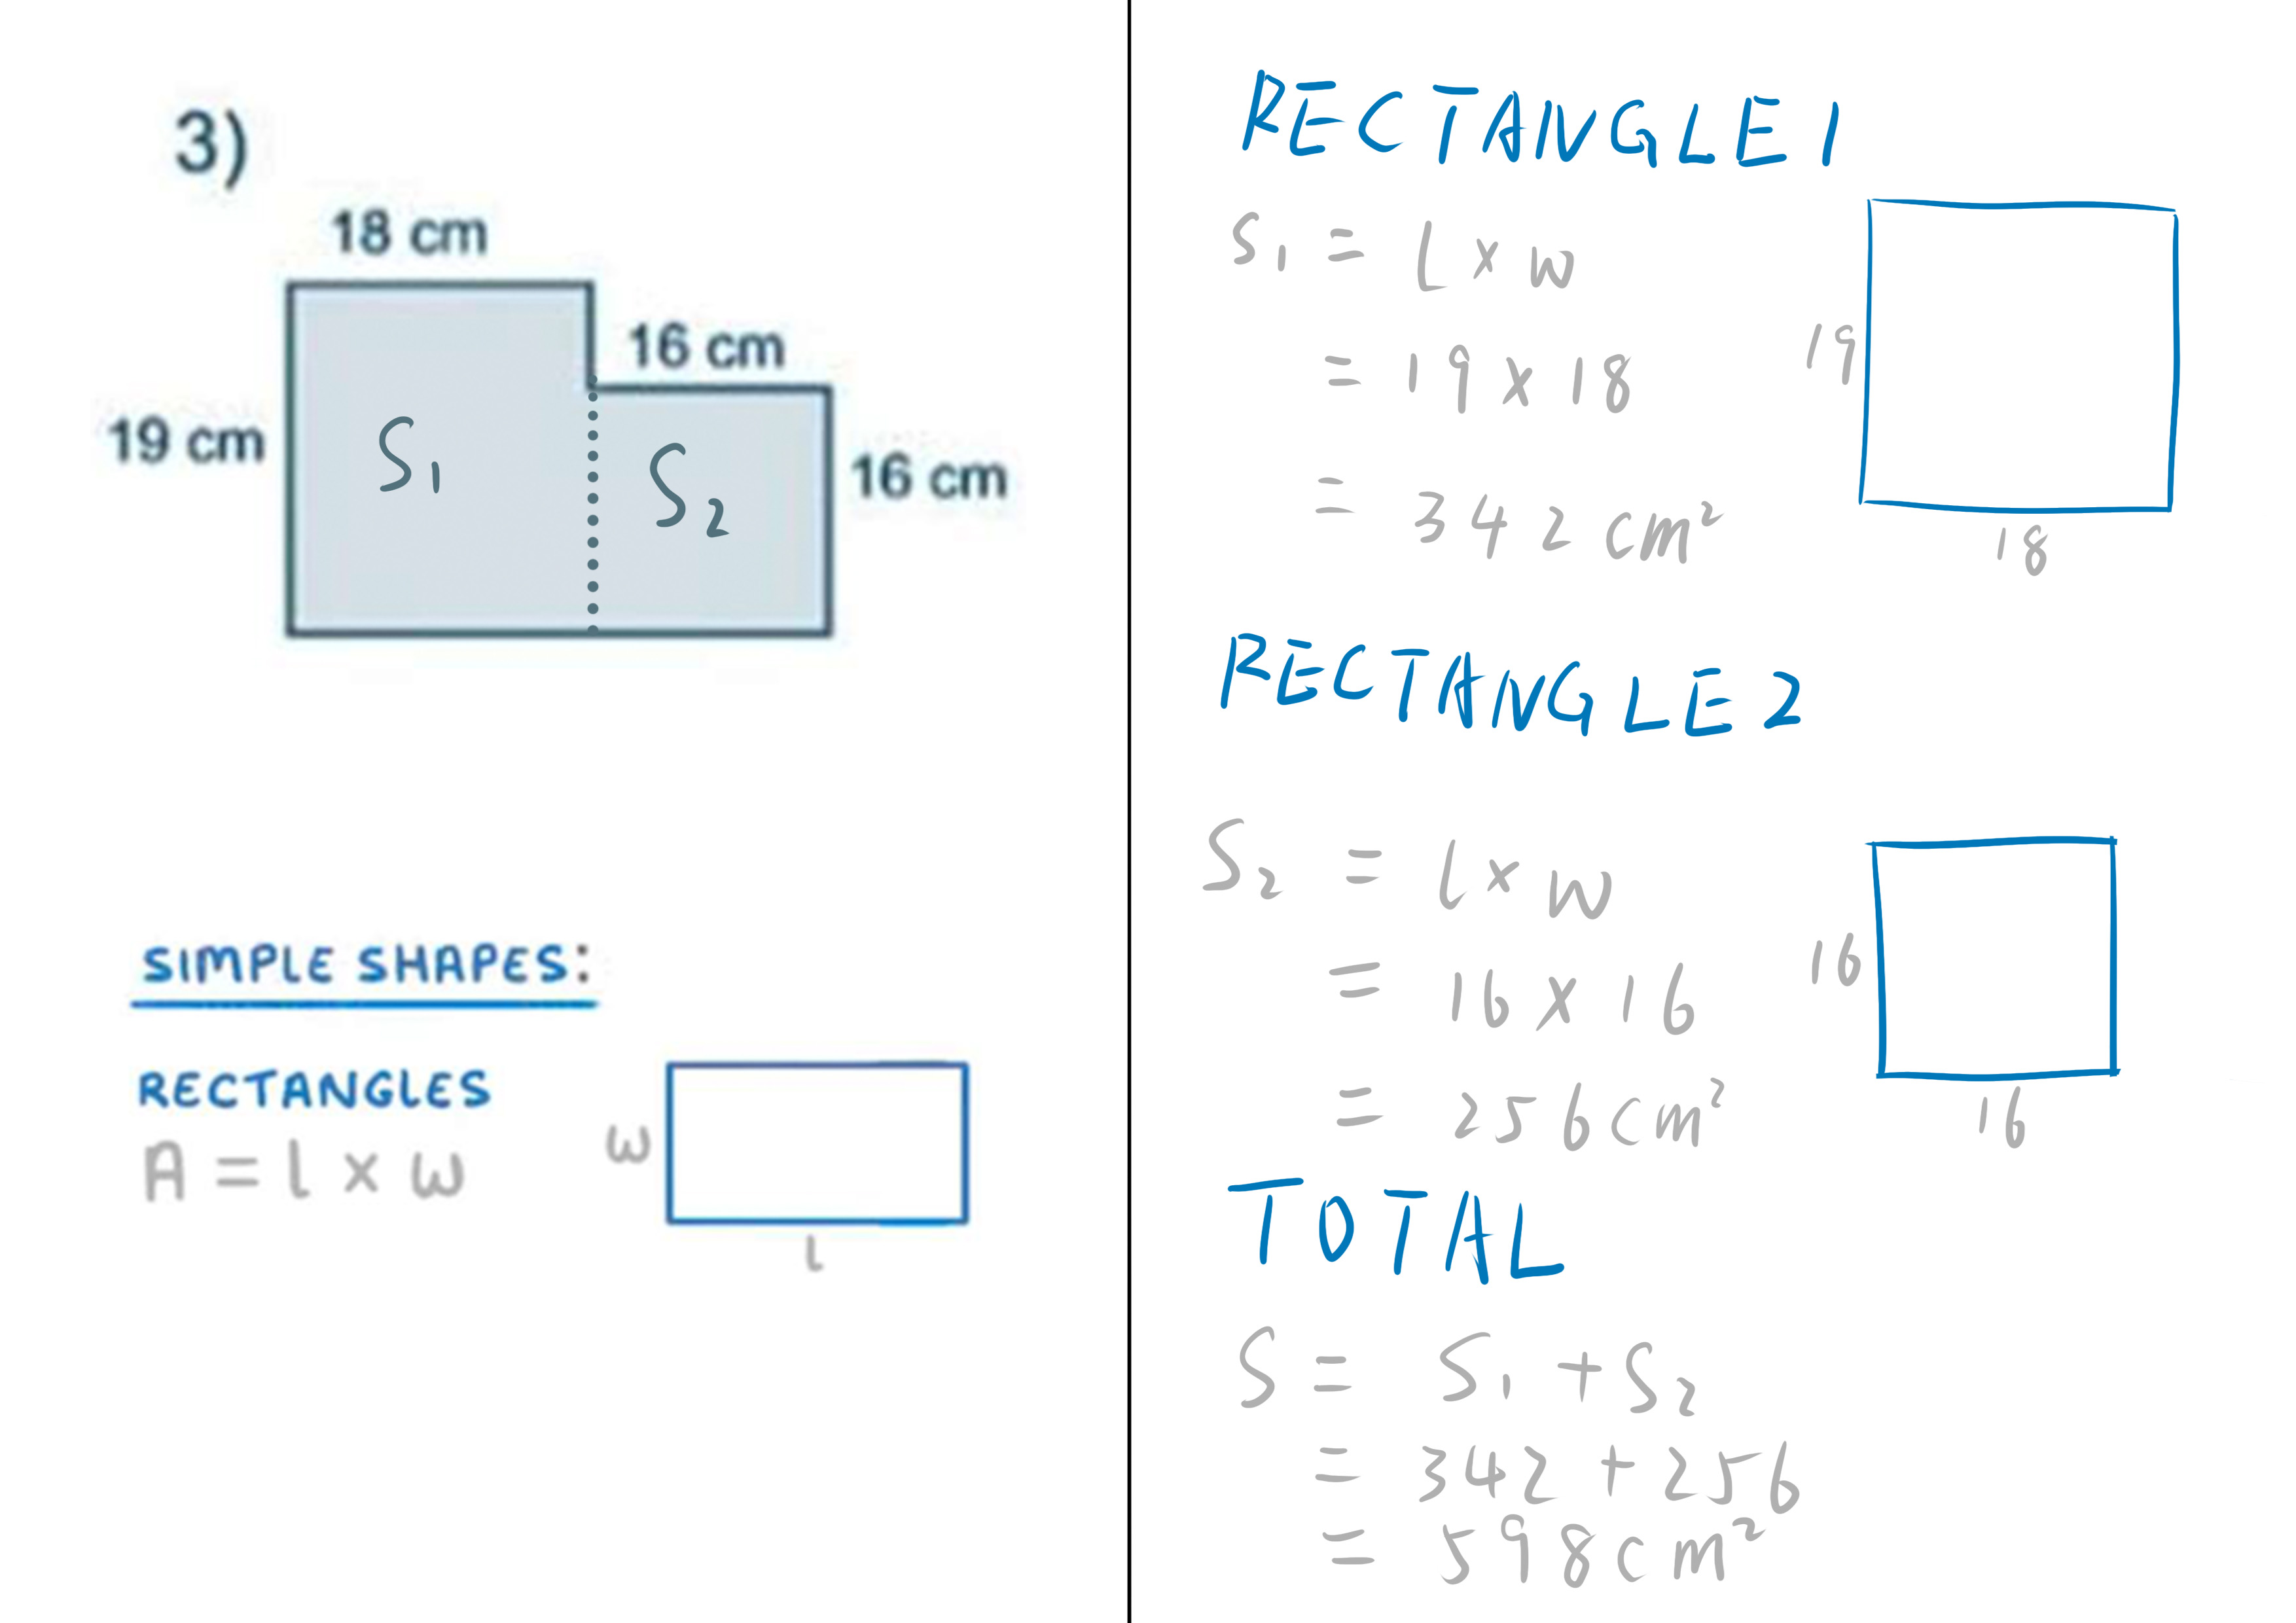 3)
18 cm
16 cm
19 cm
S₁
S₂
16 cm
SIMPLE SHAPES:
RECTANGLES
A = l × w
w
l
RECTANGLE 1
S₁ = l × w
= 19 × 18
= 342 cm²
19
18
RECTANGLE 2
S₂ = l × w
= 16 × 16
= 256 cm²
16
16
TOTAL
S = S₁ + S₂
= 342 + 256
= 598 cm²